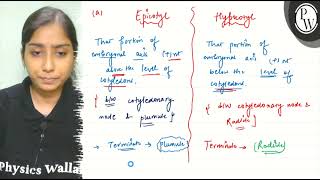 (a) Epicotyl
That portion of
embryonal axis (+)nt
above the level of
cotyledons.
{ b/w cotyledonary
node & plumule }
→ Terminates → Plumule
Hypocotyl
That portion of
embryonal axis (+)nt
below the level of
cotyledons.
{ b/w cotyledonary node &
Radicle }
Terminate → Radicle
PW
Physics Walla